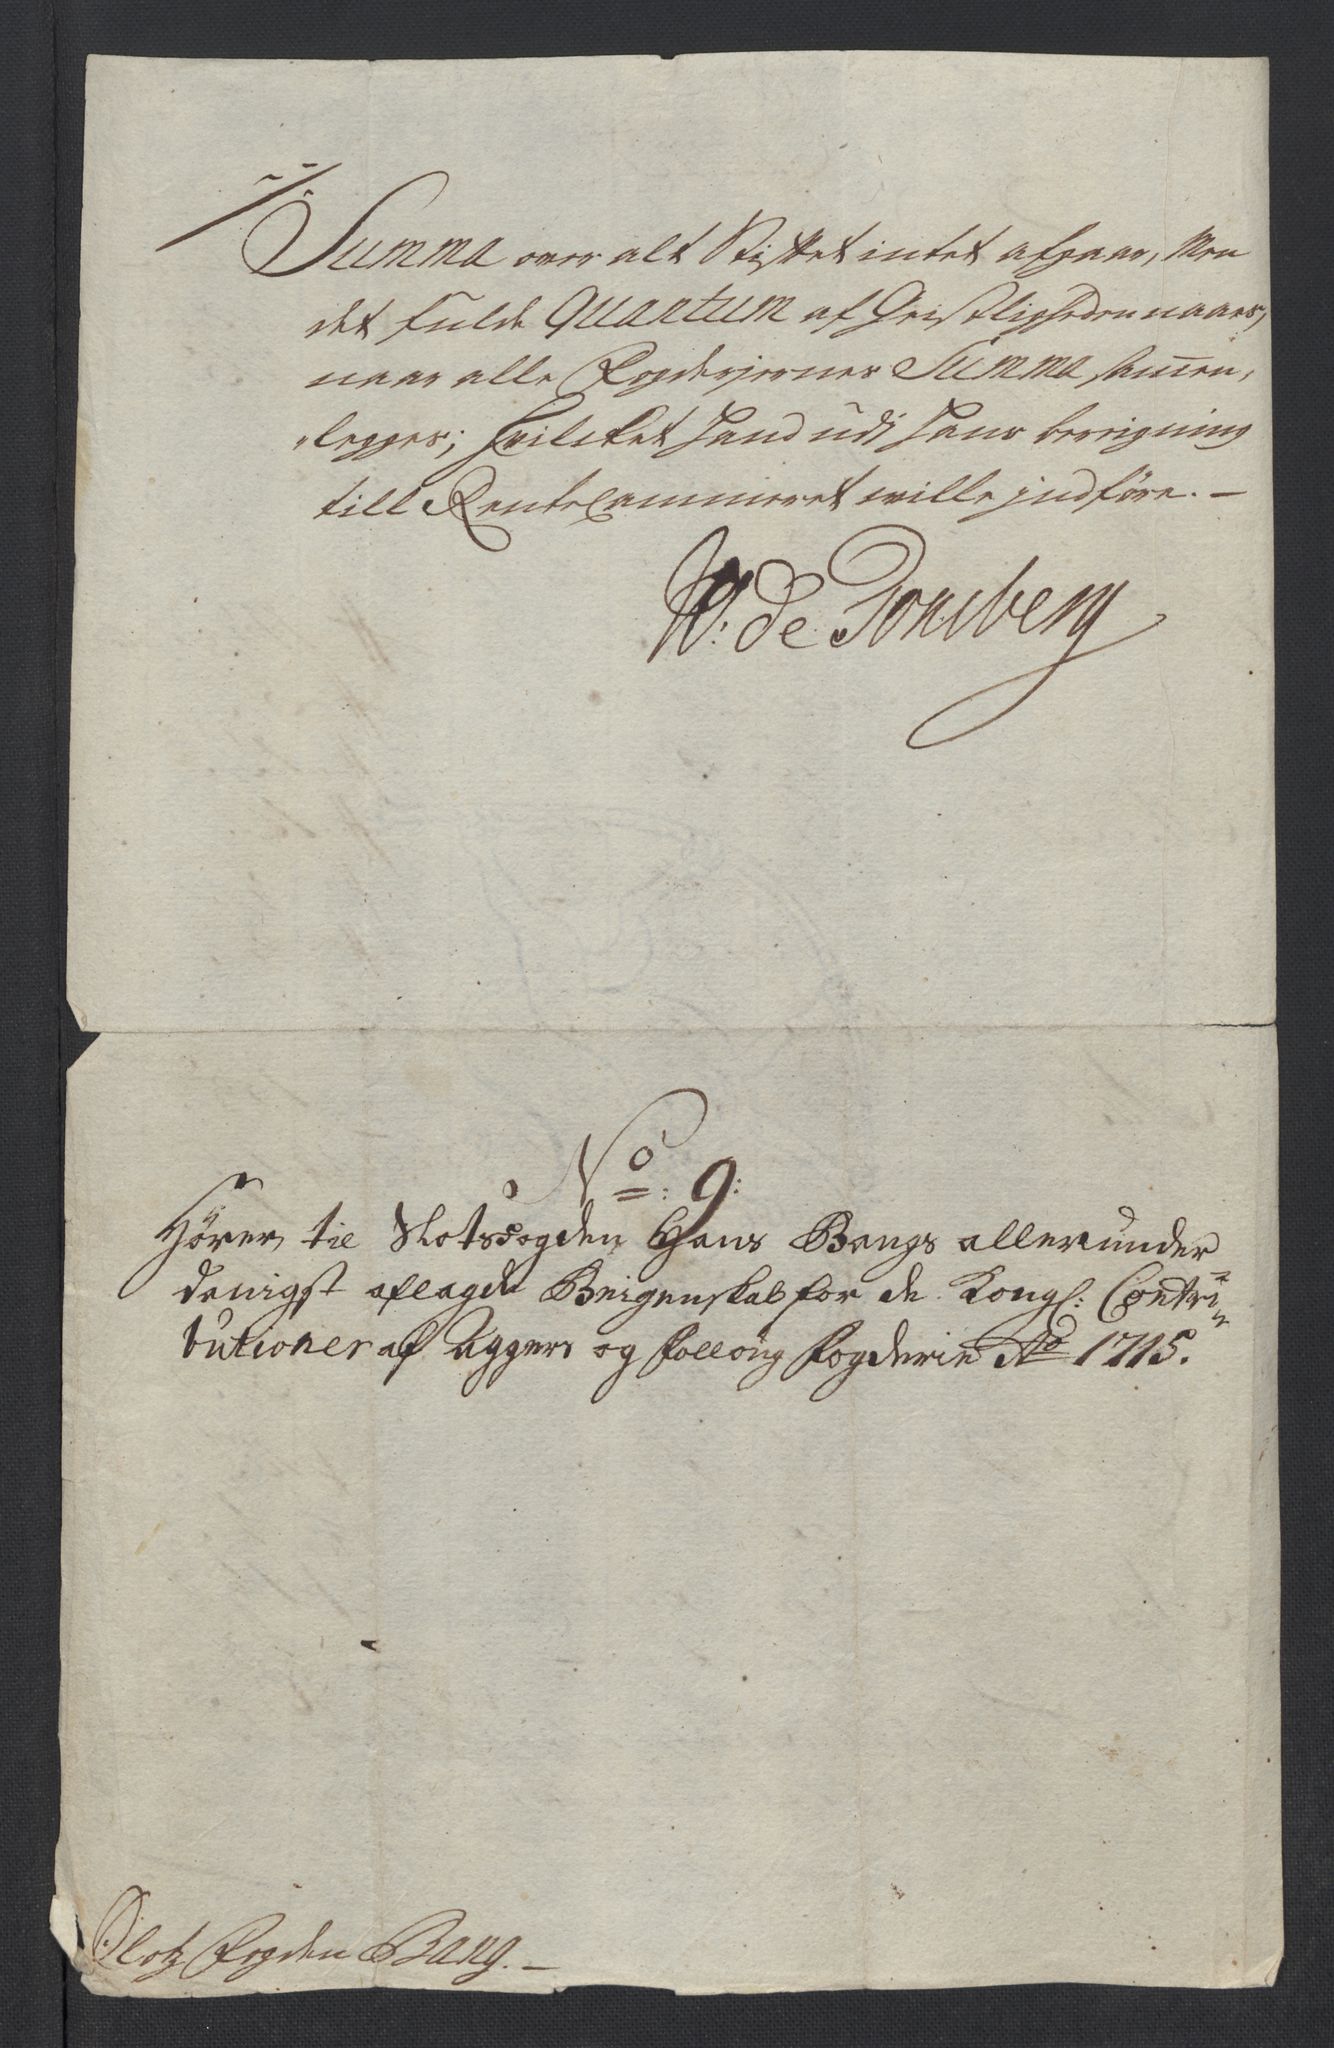 Summa over alt Stiftet intet afgaar, Men
det fulde Quantum af Geistligheden naaes,
naar alle Fogderiernes Summa samen,
„legges; hvilcket hand udi hans beregning
till RenteCammeret wille jndföre. –
W: de Tonsberg
No: 9:
Hörer til Slotsfogden Hans Bangs allerunder
danigst aflagde Reigenskab for de Kongl: Contri=
butioner af Aggers og Follow fogderie Ao 1715.
Slotz Fogden Bang. –